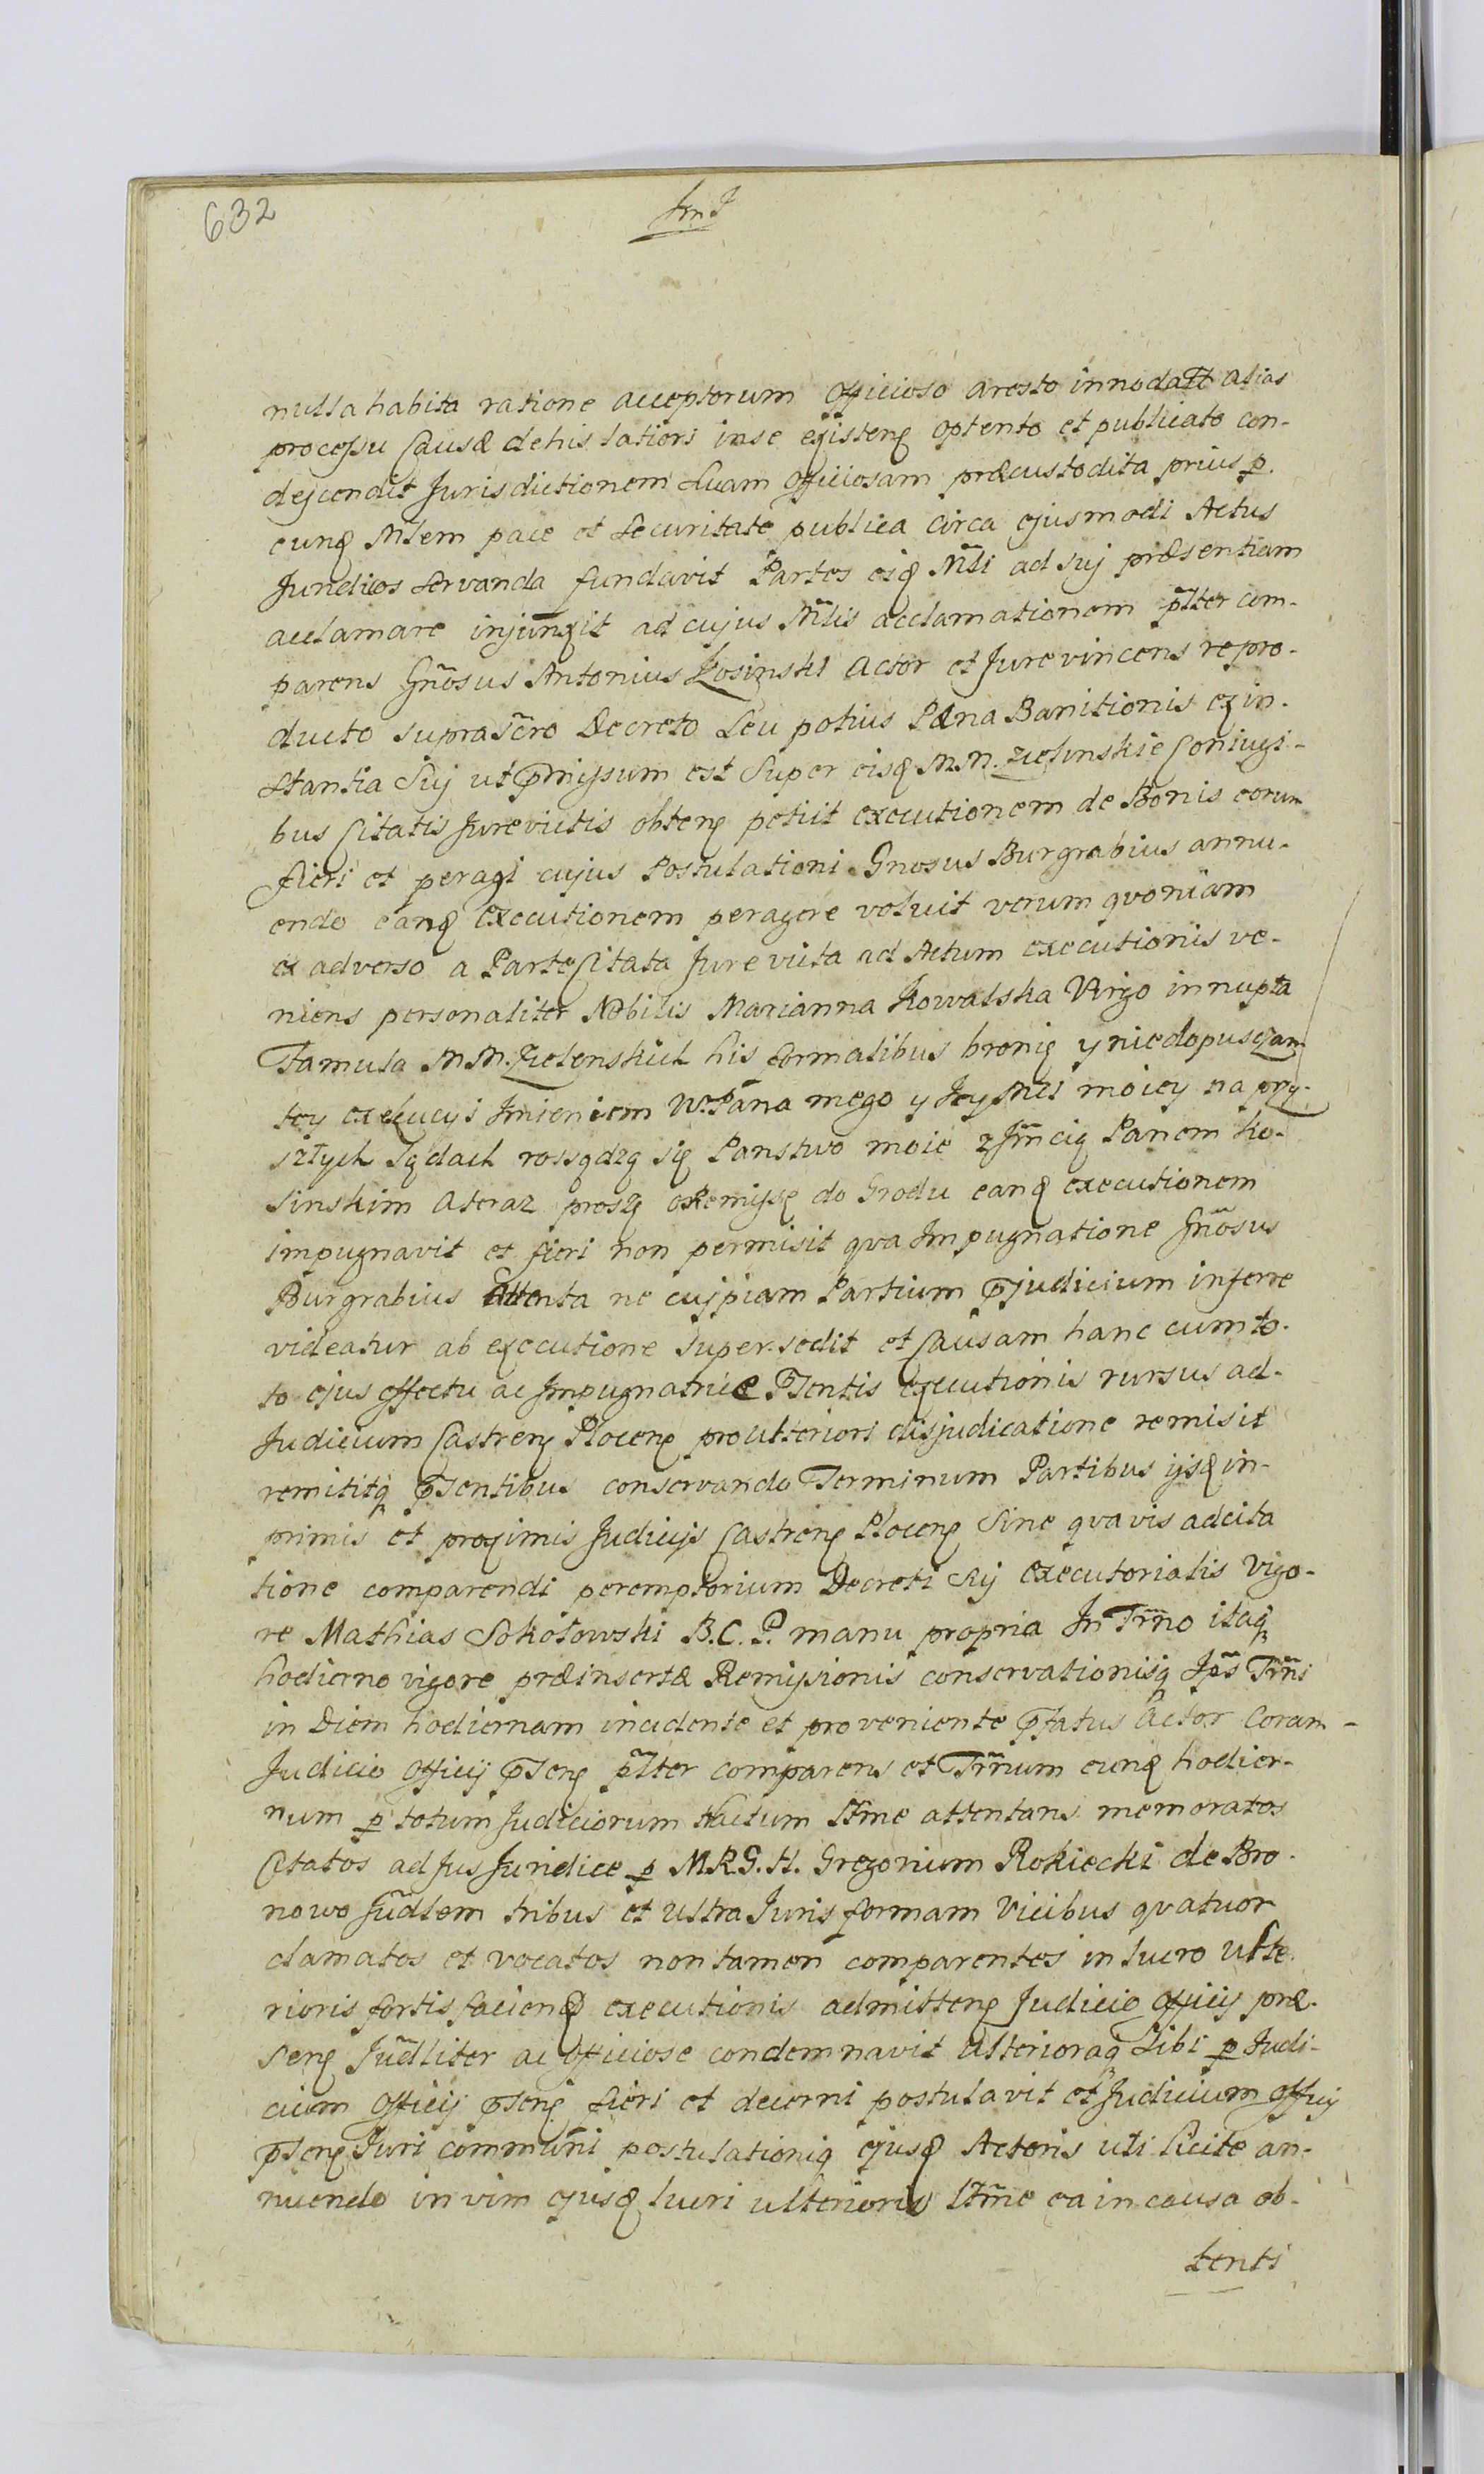 632
nulla habita ratione acceptorum officioso aresto innodatt alias
processu Causæ de his latiori in se existenꝭ optento et publicato con-
descendit Jurisdictionem Suam officiosam præcustodita prius p̱.
eunꝗ Mlem pace et Securitate publica circa ejusmodi Actus
Juridicos Servanda fundavit Partes eiꝗ Mli ad sui præsentiam
acclamare injunxit ad cujus Mlis acclamationem plter com-
parens Gnosus Antonius Kosinski Actor et Jure vincens repro-
ducto supraScro Decreto Seu potius Pæna Banitionis ex in-
stantia Sui ut p̄missum est Super eisꝗ M.M. Zielinskie Coniugi-
bus Citatis Jurevictis obtenꝭ petiit executionem de Bonis eorum
fieri et peragi cujus Postulationi Gnosus Burgrabius annu-
endo eanꝗ executionem peragere voluit verum qvoniam
ex adverso a Parte Citata Jure victa ad Actum executionis ve-
niens personaliter Nobilis Marianna Kowalska Virgo innupta
Famula M.M. Zielenskich his formalibus bronię y niedopusczam
tey exekucyi Imieniem W. Pana mego y Jeymci moiey na przy-
szłych Sądach rossądzą się Panstwo moie z Jmcią Panem Ko-
sinskim a teraz proszę o Remissę do Grodu eanꝗ executionem
impugnavit et fieri non permisit qva Impugnatione Gnosus
Burgrabius attenta ne cuipiam Partium p̄judicium inferre
videatur ab executione Super-sedit et Causam hanc cum to-
to ejus effectu ac Impugnatricæ p̄sentis executionis rursus ad-
Judicium Castrenꝭ Plocenꝭ pro ulteriori disjudicatione remisit
remititꝗ p̄sentibus conservando Terminum Partibus ijsꝗ in-
primis et proximis Judicijs Castrenꝭ Plocenꝭ Sine qvavis adcita
tione comparendi peremptorium Decreti Sui executorialis vigo-
re Mathias Sokołowski B.C.P. manu propria In Trno itaꝗ
hodierno vigore præinsertæ Remissionis conservationisꝗ Jps Trni
in Diem hodiernam incidente et proveniente p̄fatus Actor Coram-
Judicio officij p̄senꝭ plter comparens et Trnum eunꝗ hodier-
num p̱ totum Judiciorum tractum Ltme attentans memoratos
Citatos ad Jus Juridice p̱ M.R.G.H. Gregorium Rokiecki de Bro-
nowo Judlem tribus et ultra Juris formam vicibus qvatuor
clamatos et vocatos non tamen comparentes in lucro ulte-
rioris fortis faciendꝭ executionis admittenꝭ Judicio officij præ-
senꝭ Judlliter ac officiose condemnavit ulterioraꝗ Sibi p̱ Judi-
cium officij p̄senꝭ fieri et decerni postulavit et Judicium officij
p̄senꝭ Juri communi postulationiꝗ ejusꝗ Actoris uti licite an-
nuendo in vim ejusꝗ lucri ulterioris Ltme ea in causa ob-
tenti